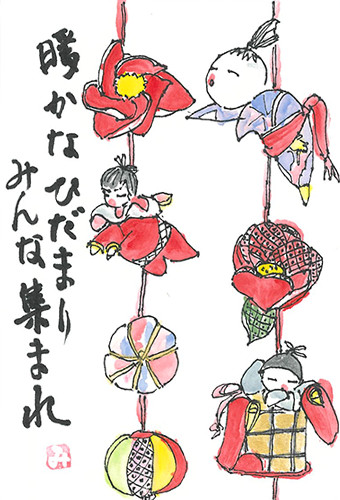 暖かなひだまり
みんな集まれ
み